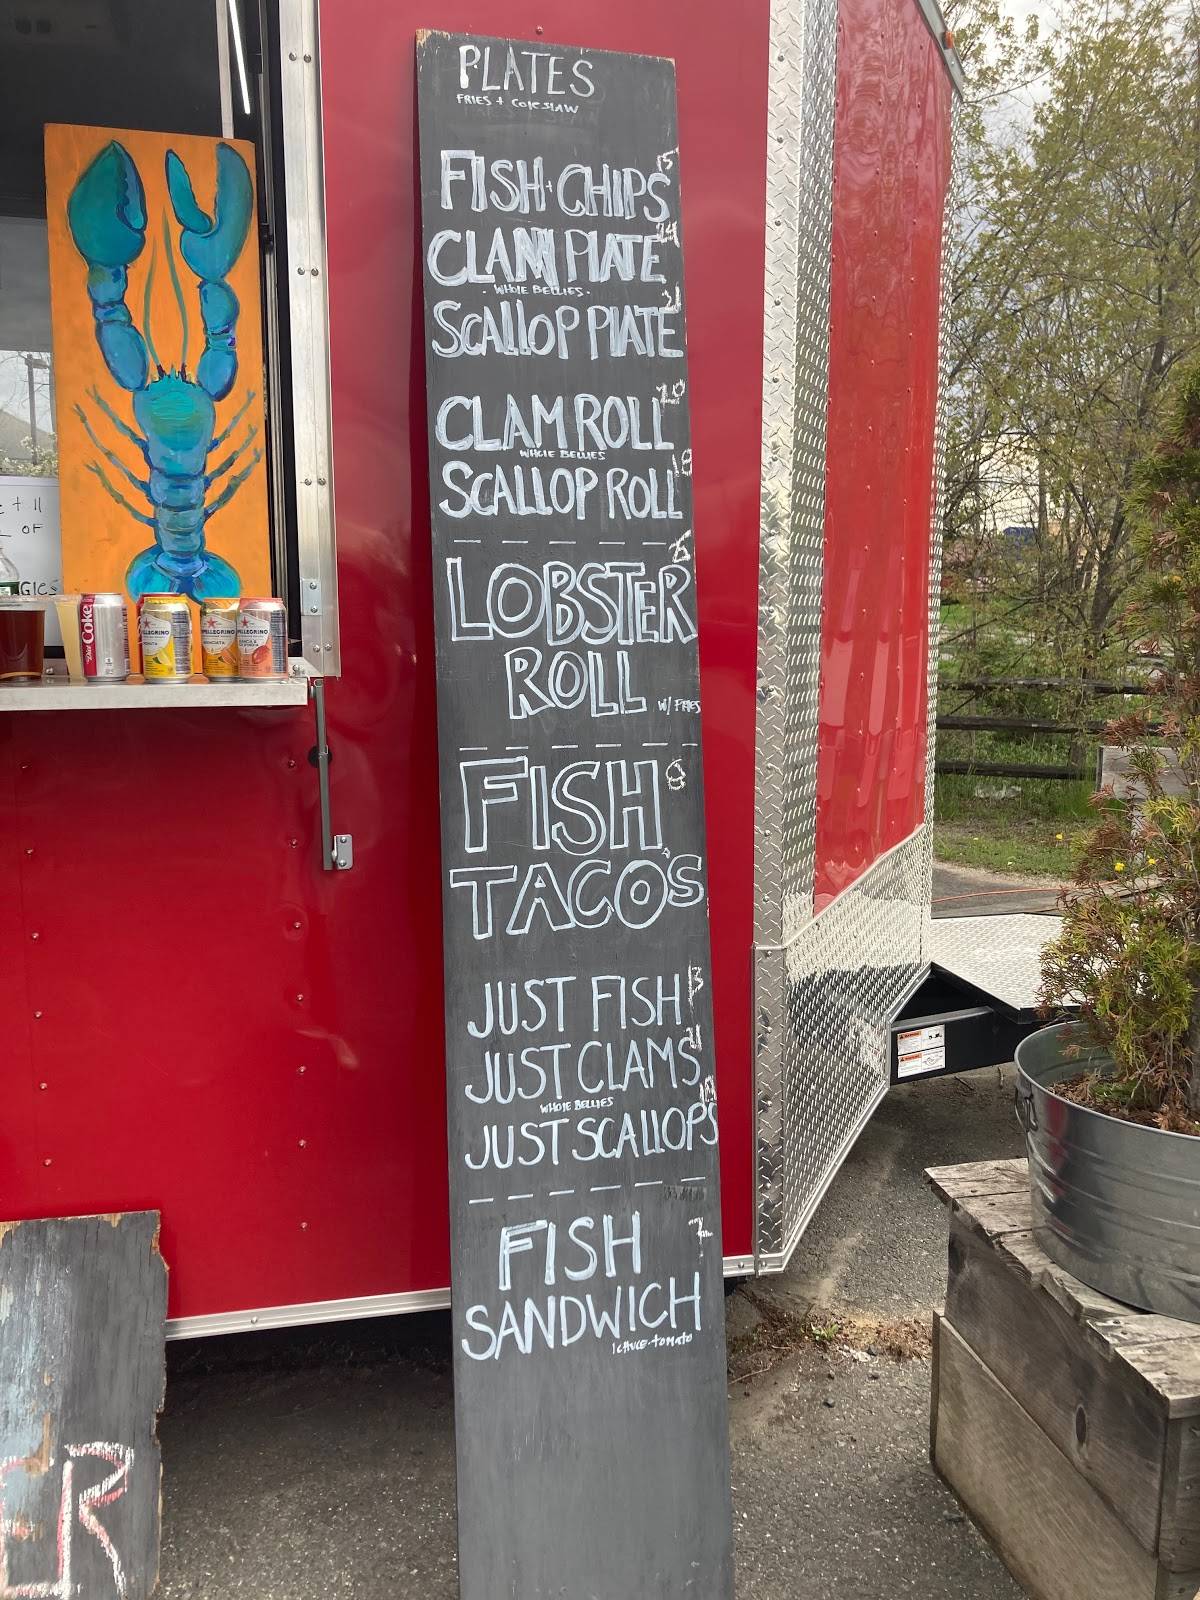 PLATES
FRIES + COleSlAW
FISH·CHIPS 15
CLAM PlATE 24
· WHOlE BELLIES ·
SCAllOP PlATE 21
CLAM ROLL 20
WHOlE BELLIES
SCALLOP ROLL 18
LOBSTER
ROLL W/ FRIES
FISH
TACO'S
JUST FISH 13
JUST CLAMS 21
WHOlE BELLIES
JUST SCAllOPS
FISH 7
SANDWICH
lettuce·tomato
+ 11
OF
GIES
Diet Coke
PELLEGRINO
PELLEGRINO
PELLEGRINO
ER